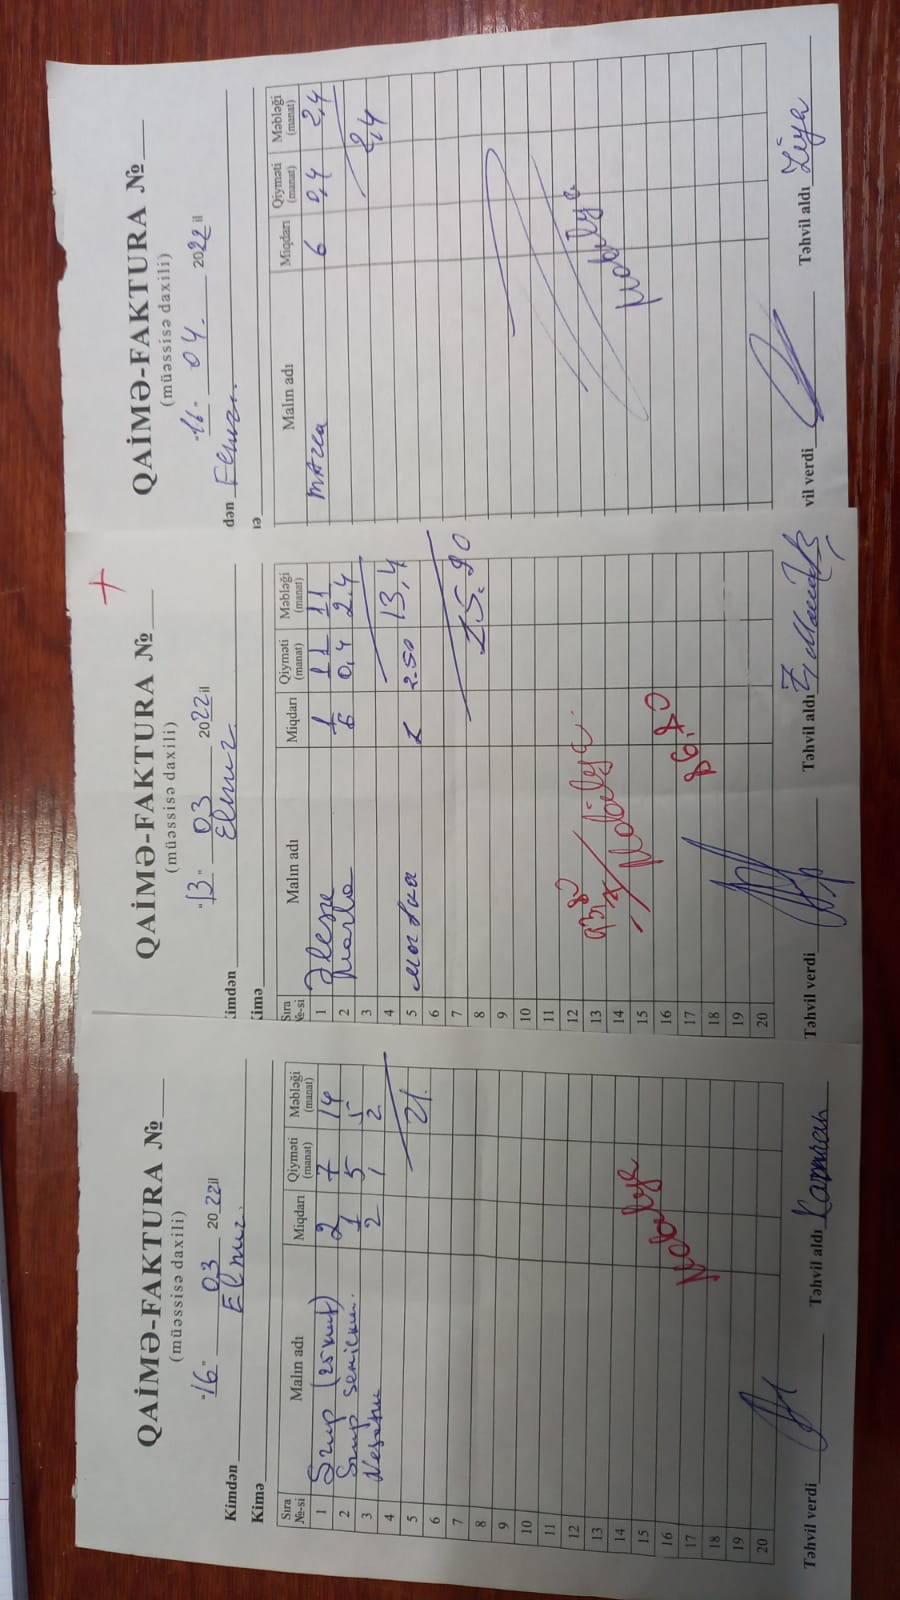 QAİMƏ-FAKTURA №
(müəssisə daxili)
"16" 03 2022 il
Kimdən Elnur.
Kimə
Sıra №-si Malın adı Miqdarı Qiyməti (manat) Məbləği (manat)
1 2 7 14
2 1 5 5
3 2 1 2
4
5 21.
6
7
8
9
10
11
12
13
14
15
16
17
18
19
20
Təhvil verdi Təhvil aldı Kamran
QAİMƏ-FAKTURA №
(müəssisə daxili)
"13" 03 2022 il
Kimdən Elnur.
Kimə
Sıra №-si Malın adı Miqdarı Qiyməti (manat) Məbləği (manat)
1 1 11 11
2 6 0,4 2.4
3
4 13,4
5 2.50
6
7
8 15.90
9
10
11
12
13
14
15
16
17
18
19
20
Təhvil verdi Təhvil aldı
QAİMƏ-FAKTURA №
(müəssisə daxili)
"16" 04 2022 il
dən Elnur..
Malın adı Miqdarı Qiyməti (manat) Məbləği (manat)
6 0,4 2,4
2,4
vil verdi Təhvil aldı Ziya